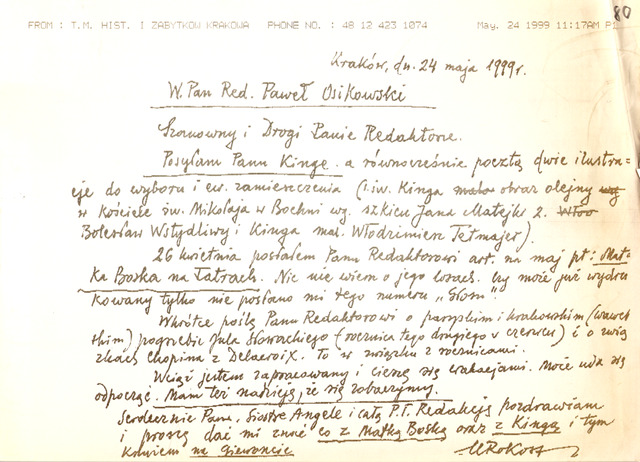 FROM : T.M. HIST. I ZABYTKOW KRAKOWA PHONE NO. : 48 12 423 1074 May. 24 1999 11:17AM P1
80
Kraków, dn. 24 maja 1999r.
W. Pan Red. Paweł Osikowski
Szanowny i Drogi Panie Redaktorze.
Posyłam Panu Kingę a równocześnie pocztą dwie ilustra-
cje do wyboru i ew. zamieszczenia (1. św. Kinga obraz olejny
w kościele św. Mikołaja w Bochni wg. szkicu Jana Matejki 2.
Bolesław Wstydliwy i Kinga mal. Włodzimierz Tetmajer).
26 kwietnia posłałem Panu Redaktorowi art. na maj pt: Mat-
ka Boska na Tatrach. Nic nie wiem o jego losach. Czy może już wydru
kowany tylko nie posłano mi tego numeru „Głosu".
Wkrótce poślę Panu Redaktorowi o paryskim i krakowskim (wawel
skim) pogrzebie Jula Słowackiego (rocznica tego drugiego w czerwcu) i o zwią
zkach Chopina z Delacroix. To w związku z rocznicami.
Wciąż jestem zapracowany i cieszę się wakacjami. Może uda się
odpocząć. Mam też nadzieję, że się zobaczymy.
Serdecznie Pana, Siostrę Angelę i całą P.T. Redakcję pozdrawiam
i proszę dać mi znać co z Matką Boską oraz z Kingą i tym
na Giewoncie